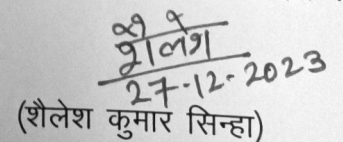 शैलेश
27-12-2023
(शैलेश कुमार सिन्हा)